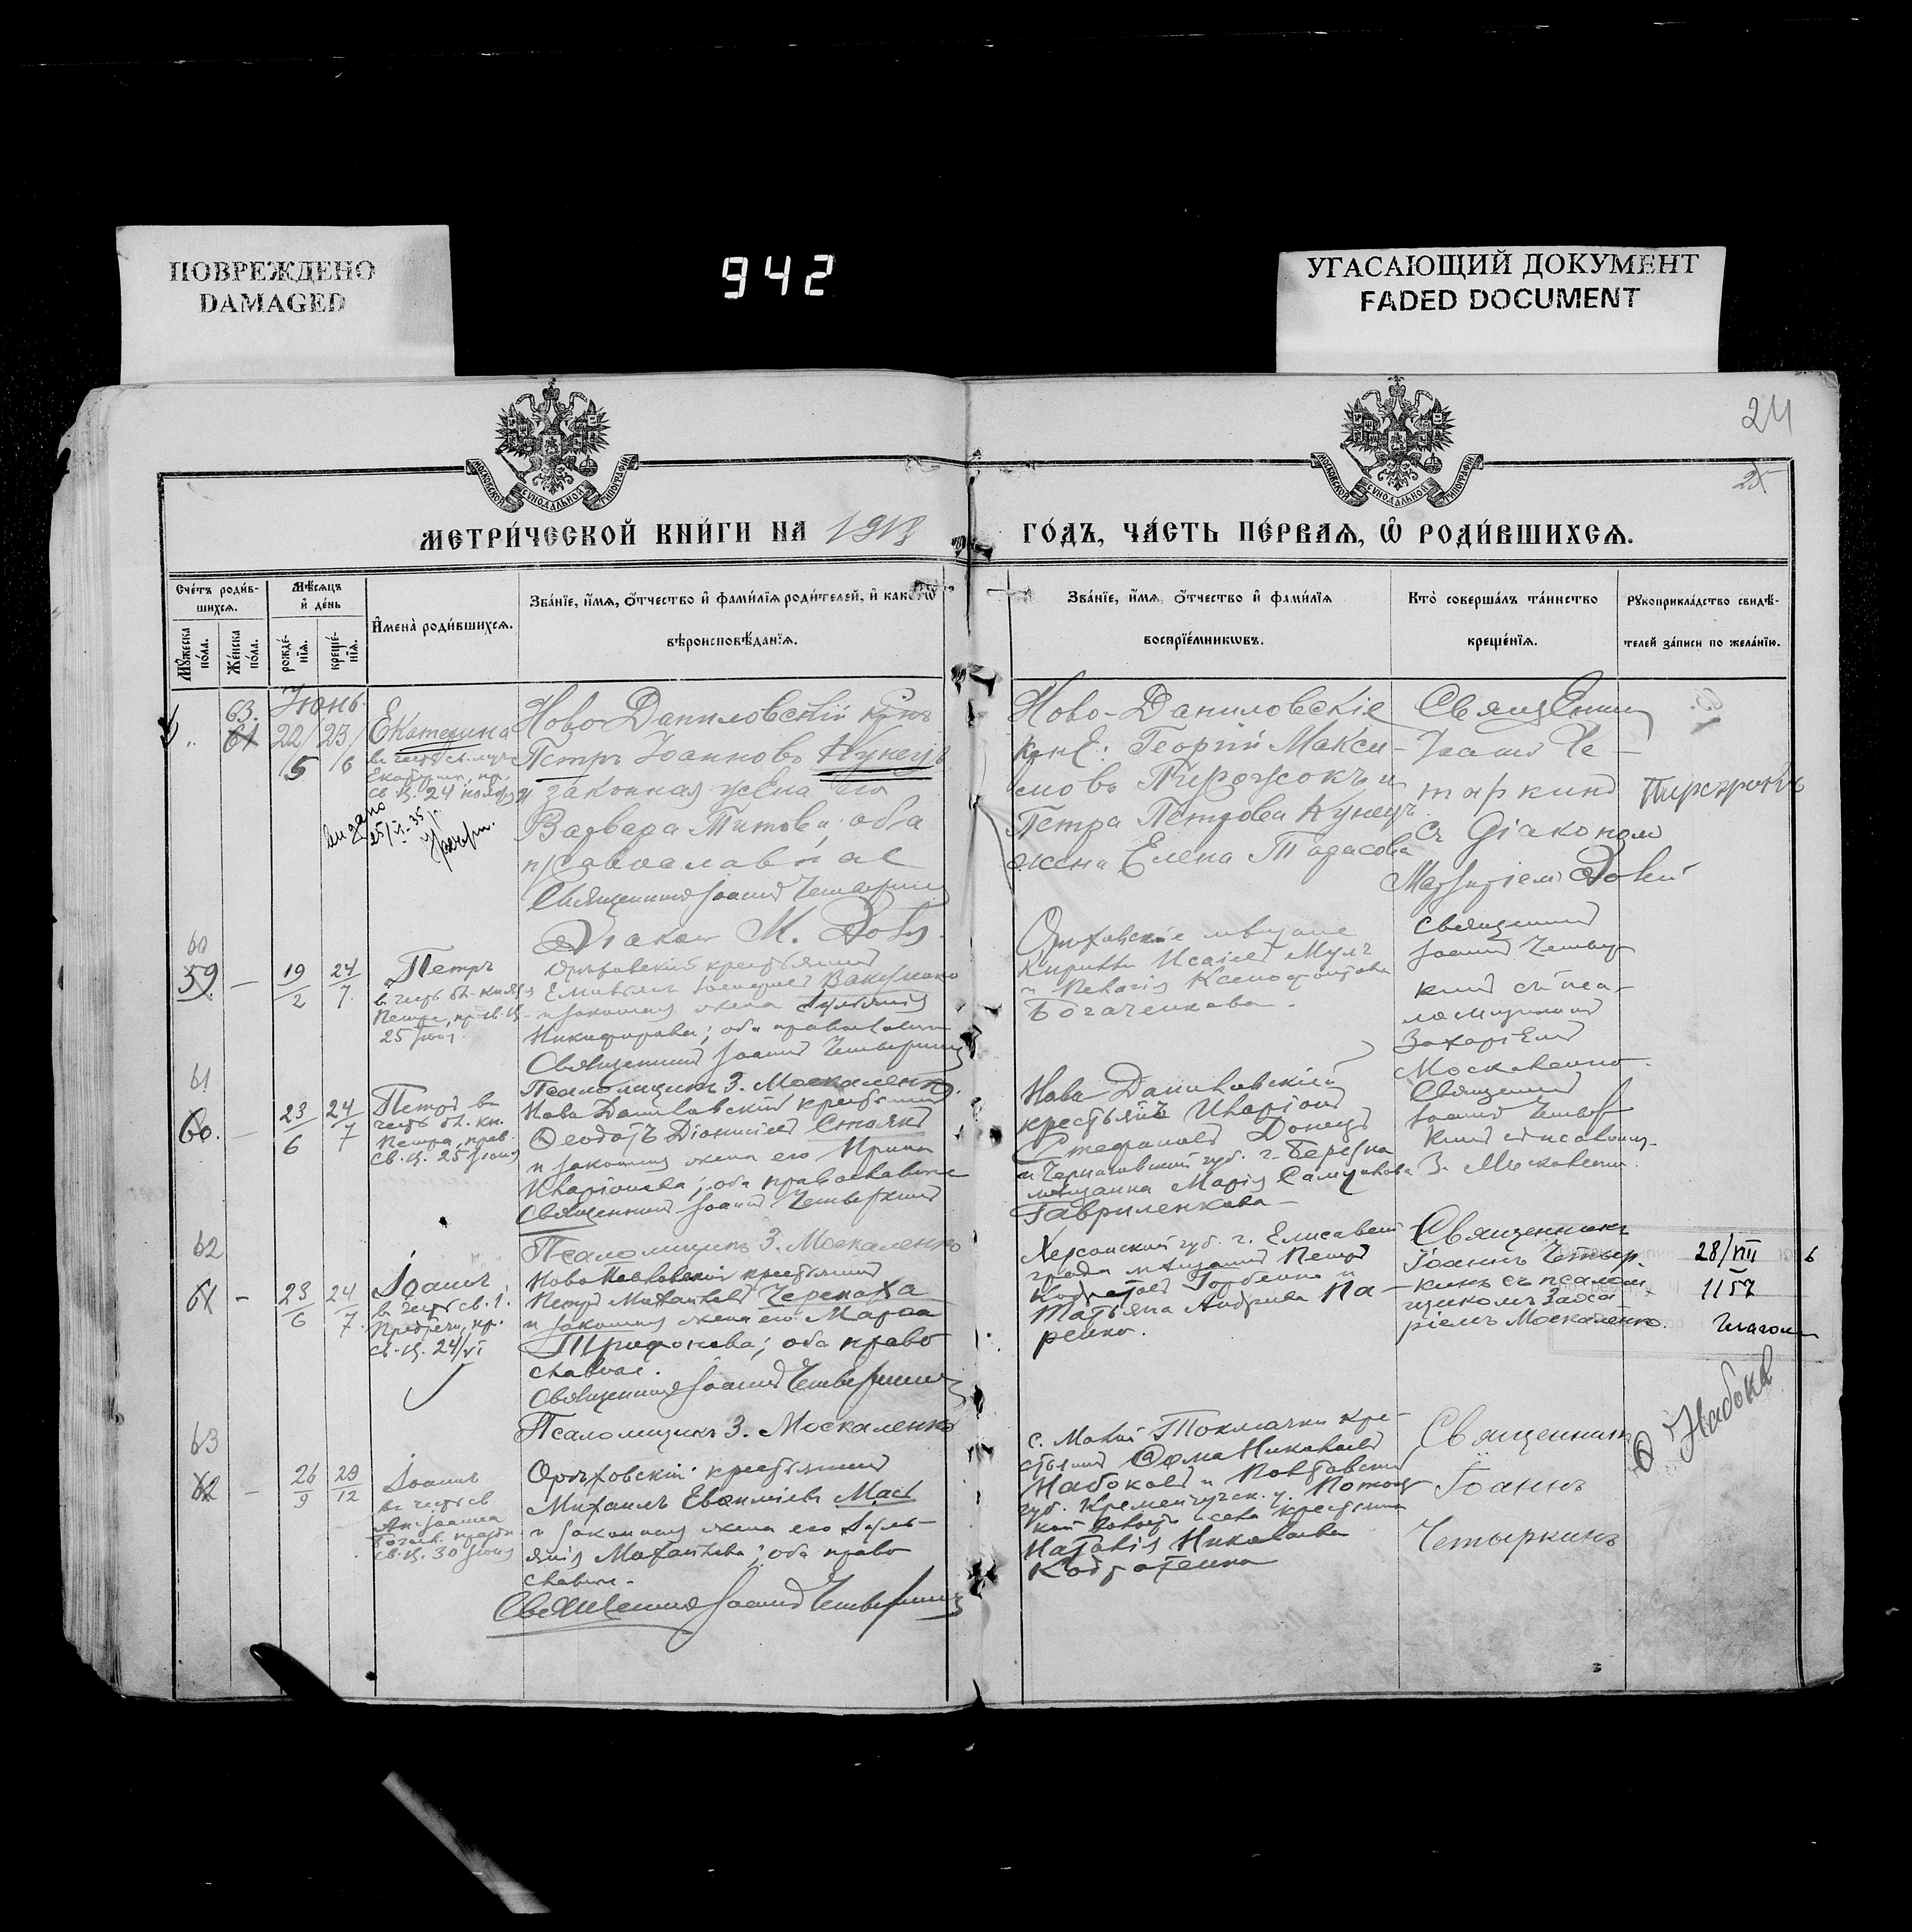 ПОВРЕЖДЕНО
DAMAGED
942
УГАСАЮЩИЙ ДОКУМЕНТ
FADED DOCUMENT
24
25
МОСКОВСКОЙ СѴНОДАЛЬНОЙ ТИПОГРАФІИ
МОСКОВСКОЙ СѴНОДАЛЬНОЙ ТИПОГРАФІИ
МЕТРИ́ЧЕСКОЙ КНИ́ГИ НА 1918
ГО́ДЪ, ЧА́СТЬ ПЕ́РВАѦ, Ѡ҆ РОДИ́ВШИХСѦ.
Сче́тъ роди́в-
шихсѧ.
Мѣ́сѧцъ
и҆ де́нь
Мꙋ́жеска по́ла.
Же́нска по́ла.
рожде́-
нїѧ.
креще́-
нїѧ.
И҆мена̀ роди́вшихсѧ.
Зва́нїе, и҆́мѧ, ѻ҆́тчество и҆ фами́лїѧ роди́телей, и҆ како́гѡ
вѣроисповѣ́данїѧ.
Зва́нїе, и҆́мѧ, ѻ҆́тчество и҆ фами́лїѧ
воспрїе́мникѡвъ.
Кто̀ соверша́лъ та́инство
креще́нїѧ.
Рꙋкоприкла́дство свидѣ́-
телей за́писи по жела́нїю.
Іюнь
63.
61
22/5 23/6
Екатерина
въ честь св. муч.
Екатерин., пр.
св. ц. 24 ноября
выдано
25/VI-35 г.
Ново-Даниловскій крнъ
Петръ Іоанновъ Кунецъ
и законная жена его
Варвара Титова; оба
православные
Священникъ Іоаннъ Четыркинъ
Діаконъ М. Довг
Ново-Даниловскіе
крне: Георгій Макси-
мовъ Пирожокъ и
Петра Петрова Кунецъ
жена Елена Тарасова
Священникъ
Іоаннъ Че-
тыркинъ
съ діакономъ
Пирожокъ
60
59 — 19/2 24/7
Петръ
въ честь бл. князя
Петра, пр. св. ц.
25 іюня
Орѣховскій крестьянинъ
Вакуленко
и законная жена
Никифорова; оба православные
Священникъ Іоаннъ Четыркинъ
Псаломщикъ З. Москаленко.
Орѣховскіе мѣщане
Кириллъ Исаіевъ
и Пелагія Ксенофонтова
Богаченкова.
Священникъ
Іоаннъ Четыр-
кинъ съ пса-
ломщикомъ
Захаріемъ
Москаленко.
61
60. — 23/6 24/7
Петръ въ
честь бл. кн.
Петра, прав.
св. ц. 25 іюня
Ново Даниловскій крестьянинъ
Ѳеодотъ Діонисіевъ
и законная жена его Ирина
Иларіонова; оба православные
Священникъ Іоаннъ Четыркинъ
Псаломщикъ З. Москаленко
Ново Даниловскій
крестьянинъ Иларіонъ
Стефановъ Донецъ
и Черниговской губ. г. Березна
мѣщанка Марія
Гавриленкова
Священникъ
Іоаннъ Четыр-
кинъ съ псаломщ.
З. Москаленко.
62
61 — 23/6 24/7
Іоаннъ
въ честь св. І.
Предтечи, пр.
св. ц. 24/VI
крестьянинъ
Петръ Михайловъ Черепаха
и законная жена его Марѳа
Трифонова; оба право
славные.
Священникъ Іоаннъ Четыркинъ
Псаломщикъ З. Москаленко
Херсонской губ. г. Елисавет
града мѣщанинъ Петръ
Кодратовъ Горбенко и
Татьяна Андреева Па-
ренко.
Священникъ
Іоаннъ Четыр-
кинъ съ псалом-
щикомъ Заха-
ріемъ Москаленко.
28/VIII
1157
63
62 — 26/9 29/12
Іоаннъ
въ честь св.
Ап. Іоанна
Богосл. празд.
св. ц. 30 іюня
Орѣховскій крестьянинъ
Михаилъ Евѳиміевъ
и законная жена его Іуль-
янія Михайлова; оба право
славные.
Священникъ Іоаннъ Четыркинъ
с. Малой Токмачки кре-
стьянинъ Ѳома Николаевъ
Набоковъ и Полтавской
губ. Кременчугск. у. Потоц
кой волости и села крестьянка
Наталія Николаева
Кодратенко
Священникъ
Іоаннъ
Четыркинъ
Ѳ Набока